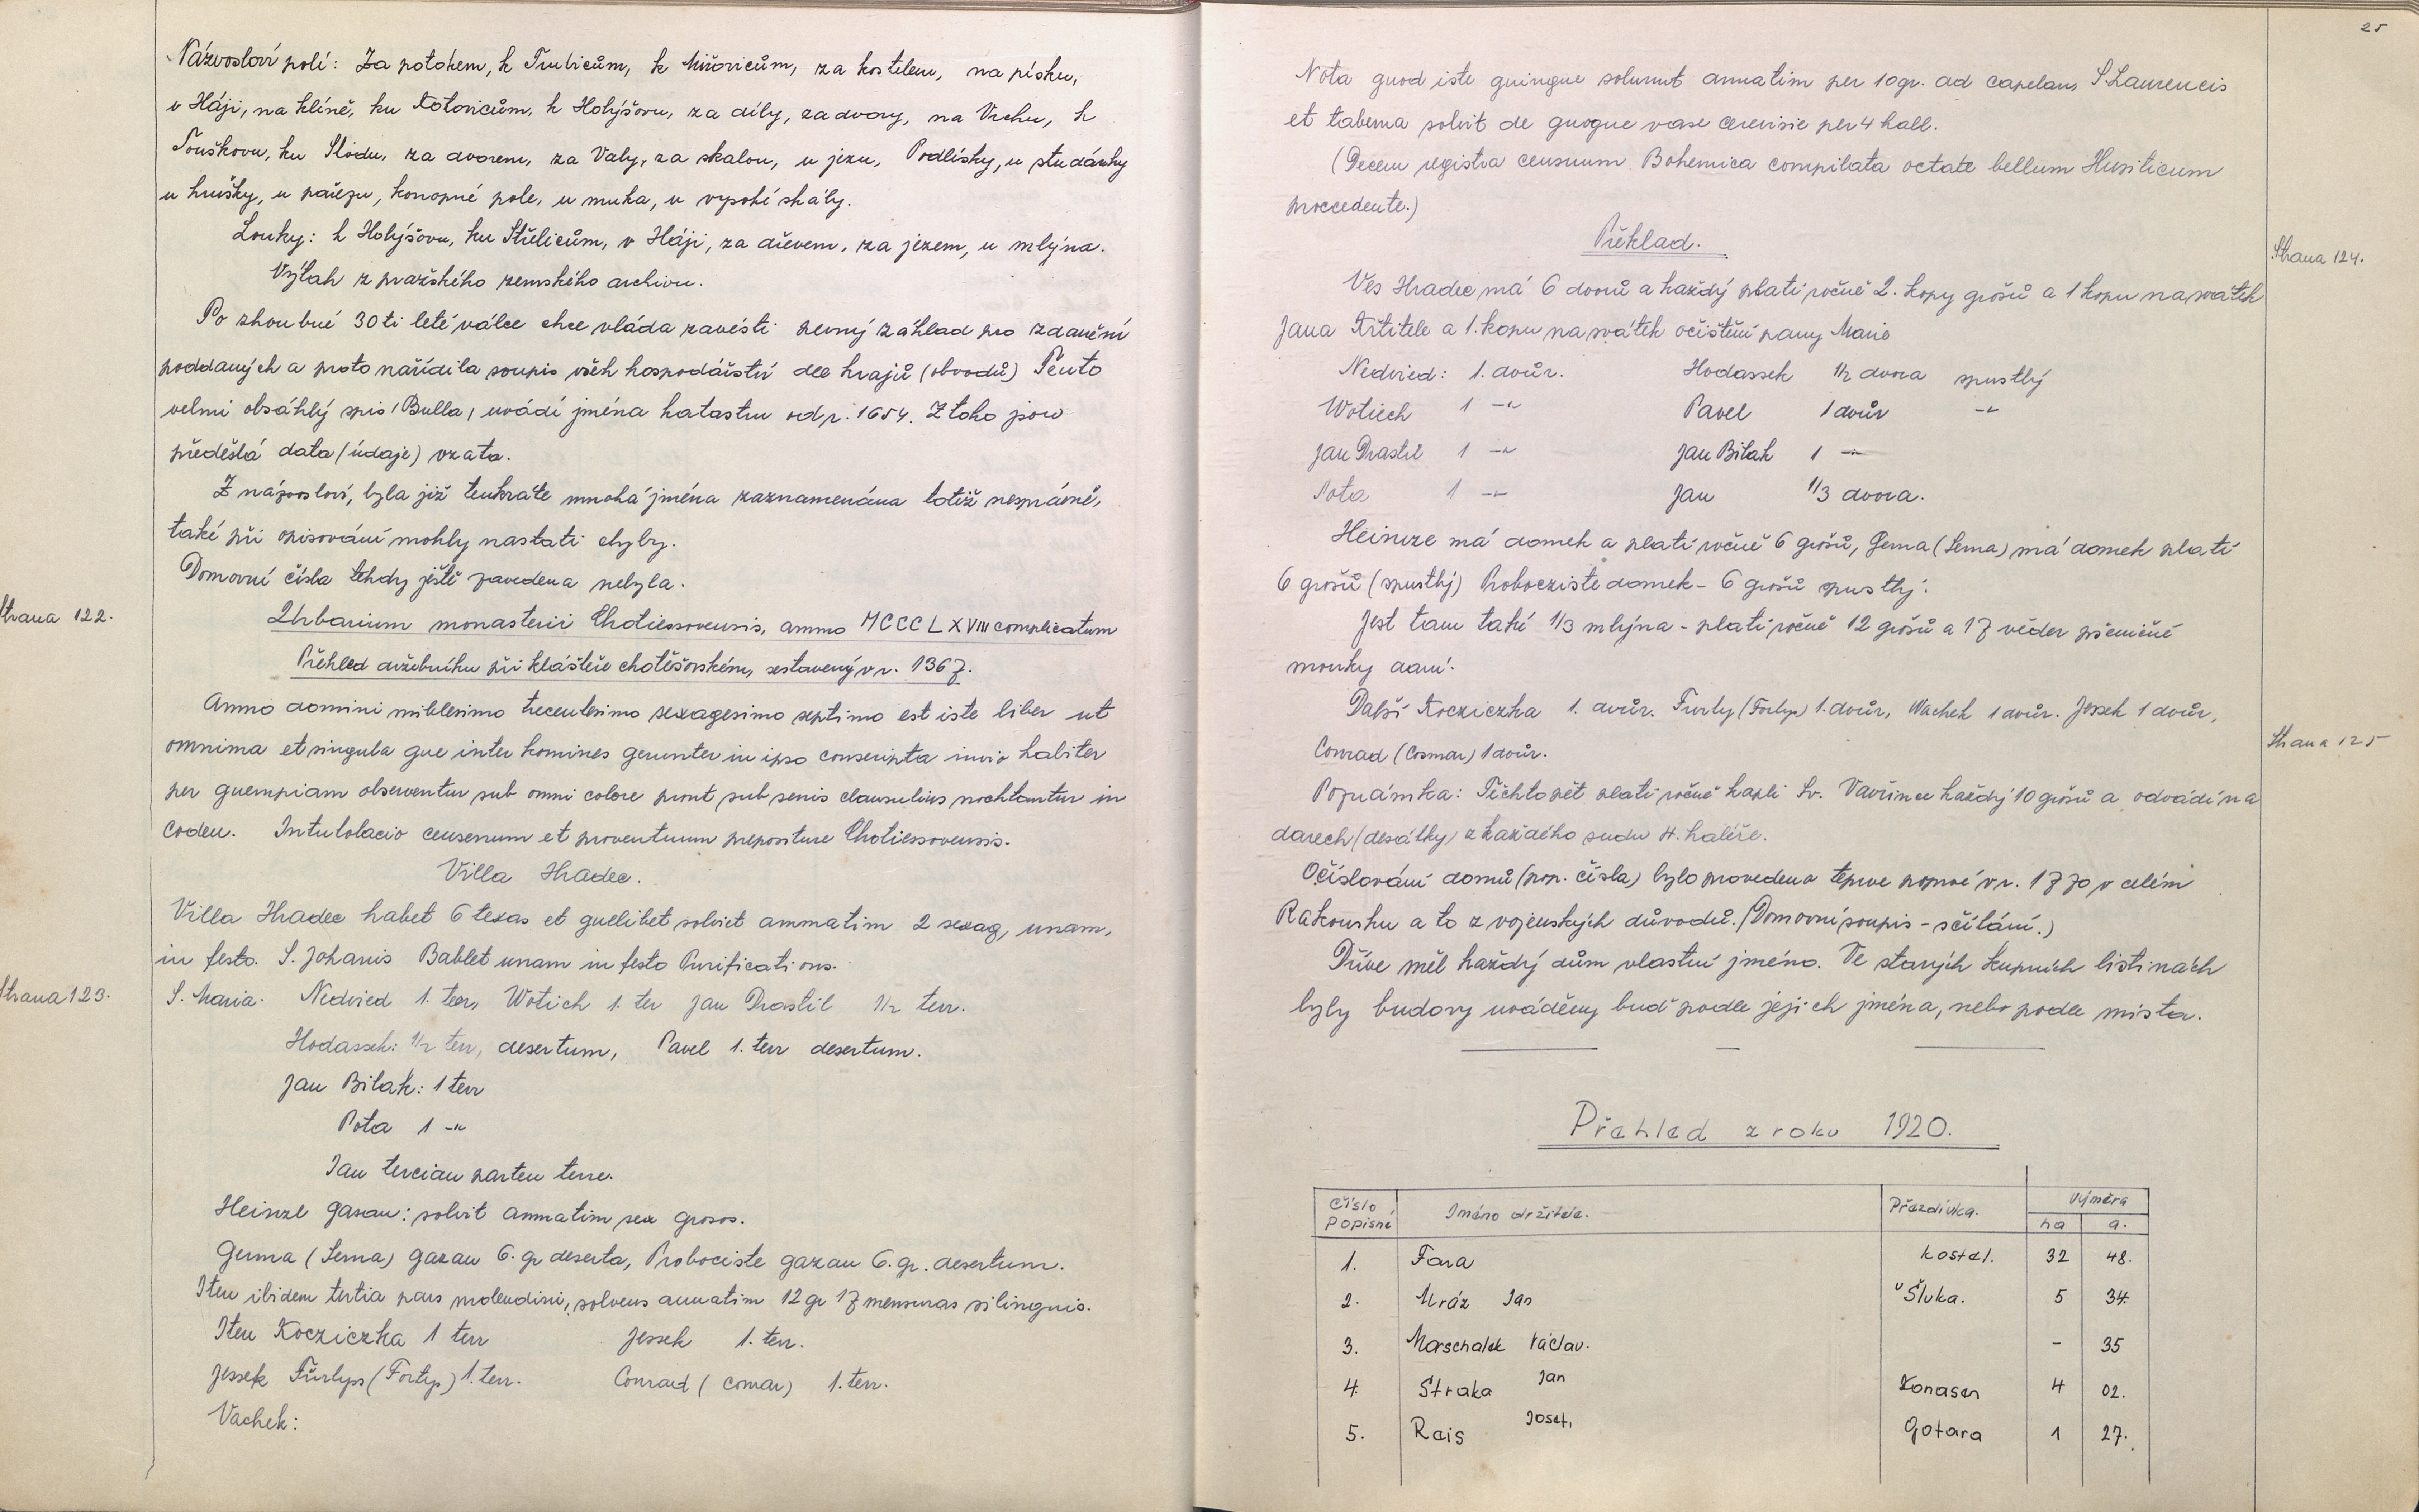 Názvosloví polí: Za potokem, k Trubicům, k Miřovicům, za kostelem, na písku,
v Háji, na klíně, ku Kotovicům, k Holýšovu, za díly, za dvory, na Vrchu, k
Touškovu, ku Slodu, za dvorem, za Valy, za skalou, u jezu, Podlísky, u studánky
u hrušky, u pařezu, konopné pole, u muka, u vysoké skály.
Louky: k Holýšovu, ku Střelicům, v Háji, za dřevem, za jezem, u mlýna.
Výtah z pražského zemského archivu.
Po zhoubné 30ti leté válce chce vláda zavésti pevný základ pro zdanění
poddaných a proto nařídila soupis všech hospodářství dle krajů (obvodů) Tento
velmi obsáhlý spis / Bulla / uvádí jména katastru od r. 1654. Z toho jsou
předešlá data (údaje) vzata.
Z názvosloví, byla již tenkráte mnohá jména zaznamenána totiž nesprávně,
také při opisování mohly nastati chyby.
Domovní čísla tehdy ještě zavedena nebyla.
Strana 122.
Urbarium monasterii Chotiessovensis, ammo MCCCLXVIII complicatum
Přehled držebníku při klášteře chotěšovském, sestavený v r. 1367.
Ammo domini millesimo trecentesimo sexagesimo septimo est iste liber ut
omnima et singula que inter homines gerunter in ipso conscripta invio habiter
per quempiam observentur sub omni colore pront sub penis clausulius nochtantur in
codeu. Intulolacio censenum et proventuum prepositure Chotiessovensis.
Villa Hradec.
Villa Hradec habet 6 texas et quelibet solviet ammatim 2 sexag, unam,
in festo. S. Johanis Bablet unam in festo Purifications.
Strana 123.
S. Maria. Nedvied 1. terr, Wotich 1. ter Jan Drastil 1/2 terr.
Hodassek: 1/2 terr, desertum, Pavel 1. terr desertum.
Jan Bilak: 1 terr
Pota 1 -"-
Jan tercian parten terre.
Heinzl gazau: solvit ammatim sex grosos.
Gerna (Serna) gazau 6. gr deserta, Probociste gazau 6. gr. desertum.
Iteu ibidem tertia pars molendini, solvens anuatim 12 gr 17 mensuras siliginis.
Iteu Kocziczka 1 terr Jessek 1. terr.
Jessek Fürlyps (Fortyp) 1. terr. Conrad (comar) 1. terr.
Vachek:
25
Nota quod iste quinque solvunt annatim per 10 gr. ad capelam S Laurencis
et taberna solvit de quoque vase cerevisie per 4 hall.
(Decem registra censuum Bohemica compilata octate bellum Husiticum
proccedente.)
Překlad.
Strana 124.
Ves Hradec má 6 dvorů a každý platí ročně 2. kopy grošů a 1 kopu na svátek
Jana Křtitele a 1. kopu na svátek očištění panny Marie
Nedvied: 1. dvůr. Hodassek 1/2 dvora spustlý
Wotiech 1 -"- Pavel 1 dvůr -"-
Jan Drastil 1 -"- Jan Bilak 1 -"-
Pota 1 -"- Jan 1/3 dvora.
Heinze má domek a platí ročně 6 grošů, Gerna (Serna) má domek platí
6 grošů (spustlý) Proboczište domek - 6 grošů spustlý.
Jest tam také 1/3 mlýna - platí ročně 12 grošů a 17 věder pšeničné
mouky daní.
Další Kocziczka 1. dvůr. Furly (Fortyp) 1. dvůr, Wachek 1 dvůr. Jessek 1 dvůr,
Strana 125
Conrad (Cosmar) 1 dvůr.
Poznámka: Těchto pět platí ročně kapli Sv. Vavřince každý 10 grošů a odvádí na
darech (desátky) z každého sudu 4. haléře.
Očíslování domů (pop. čísla) bylo provedeno teprve poprvé v r. 1770 v celém
Rakousku a to z vojenských důvodů. (Domovní soupis - sčítání.)
Dříve měl každý dům vlastní jméno. Ve starých kupních listinách
byly budovy uváděny buď podle jejich jména, nebo podle místa.
Přehled z roku 1920.
Číslo popisné Jméno držitele. Přezdívka. Výměra
ha a.
1. Fara kostel. 32 48.
2. Mráz Jan u Šluka. 5 34.
3. Marschalek Václav. - 35
4. Straka Jan Konasen 4 02.
5. Rais Josef, Gotara 1 27.